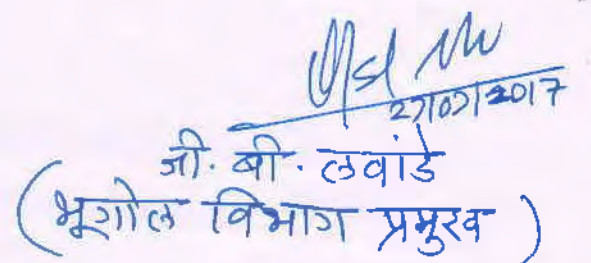 27/07/2017
जी. बी. लवांडे
(भूगोल विभाग प्रमुख)